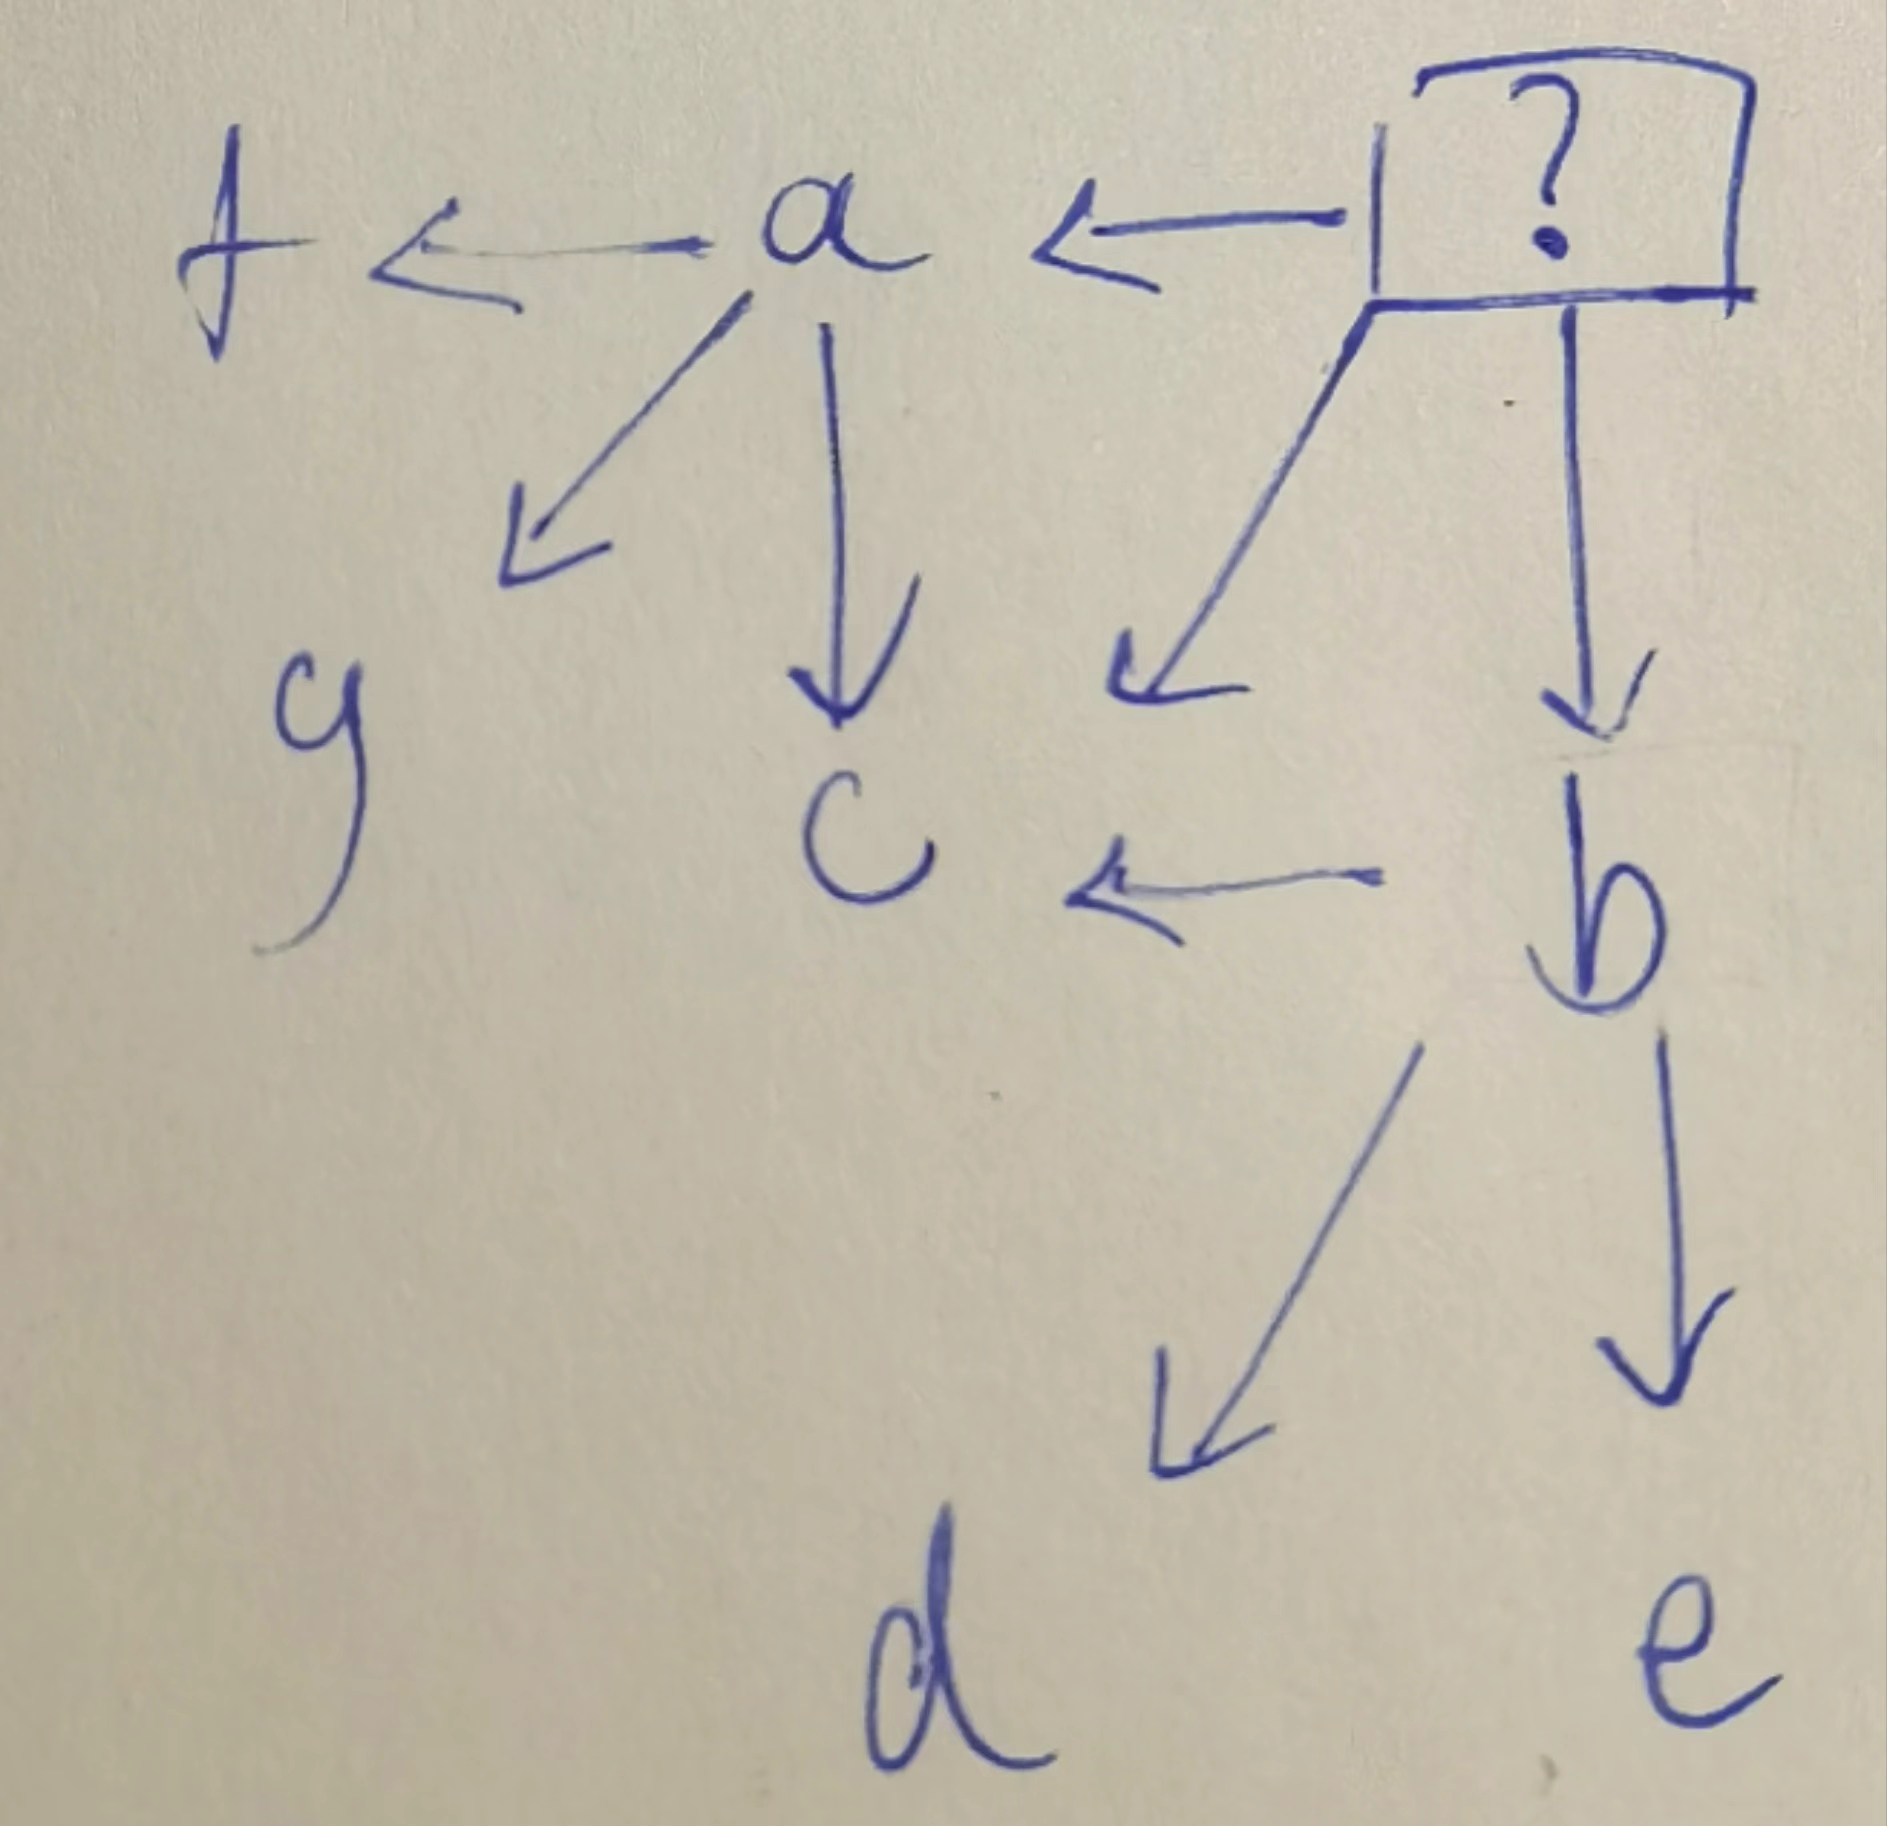 f ← a ← ?
g c ← b
d e